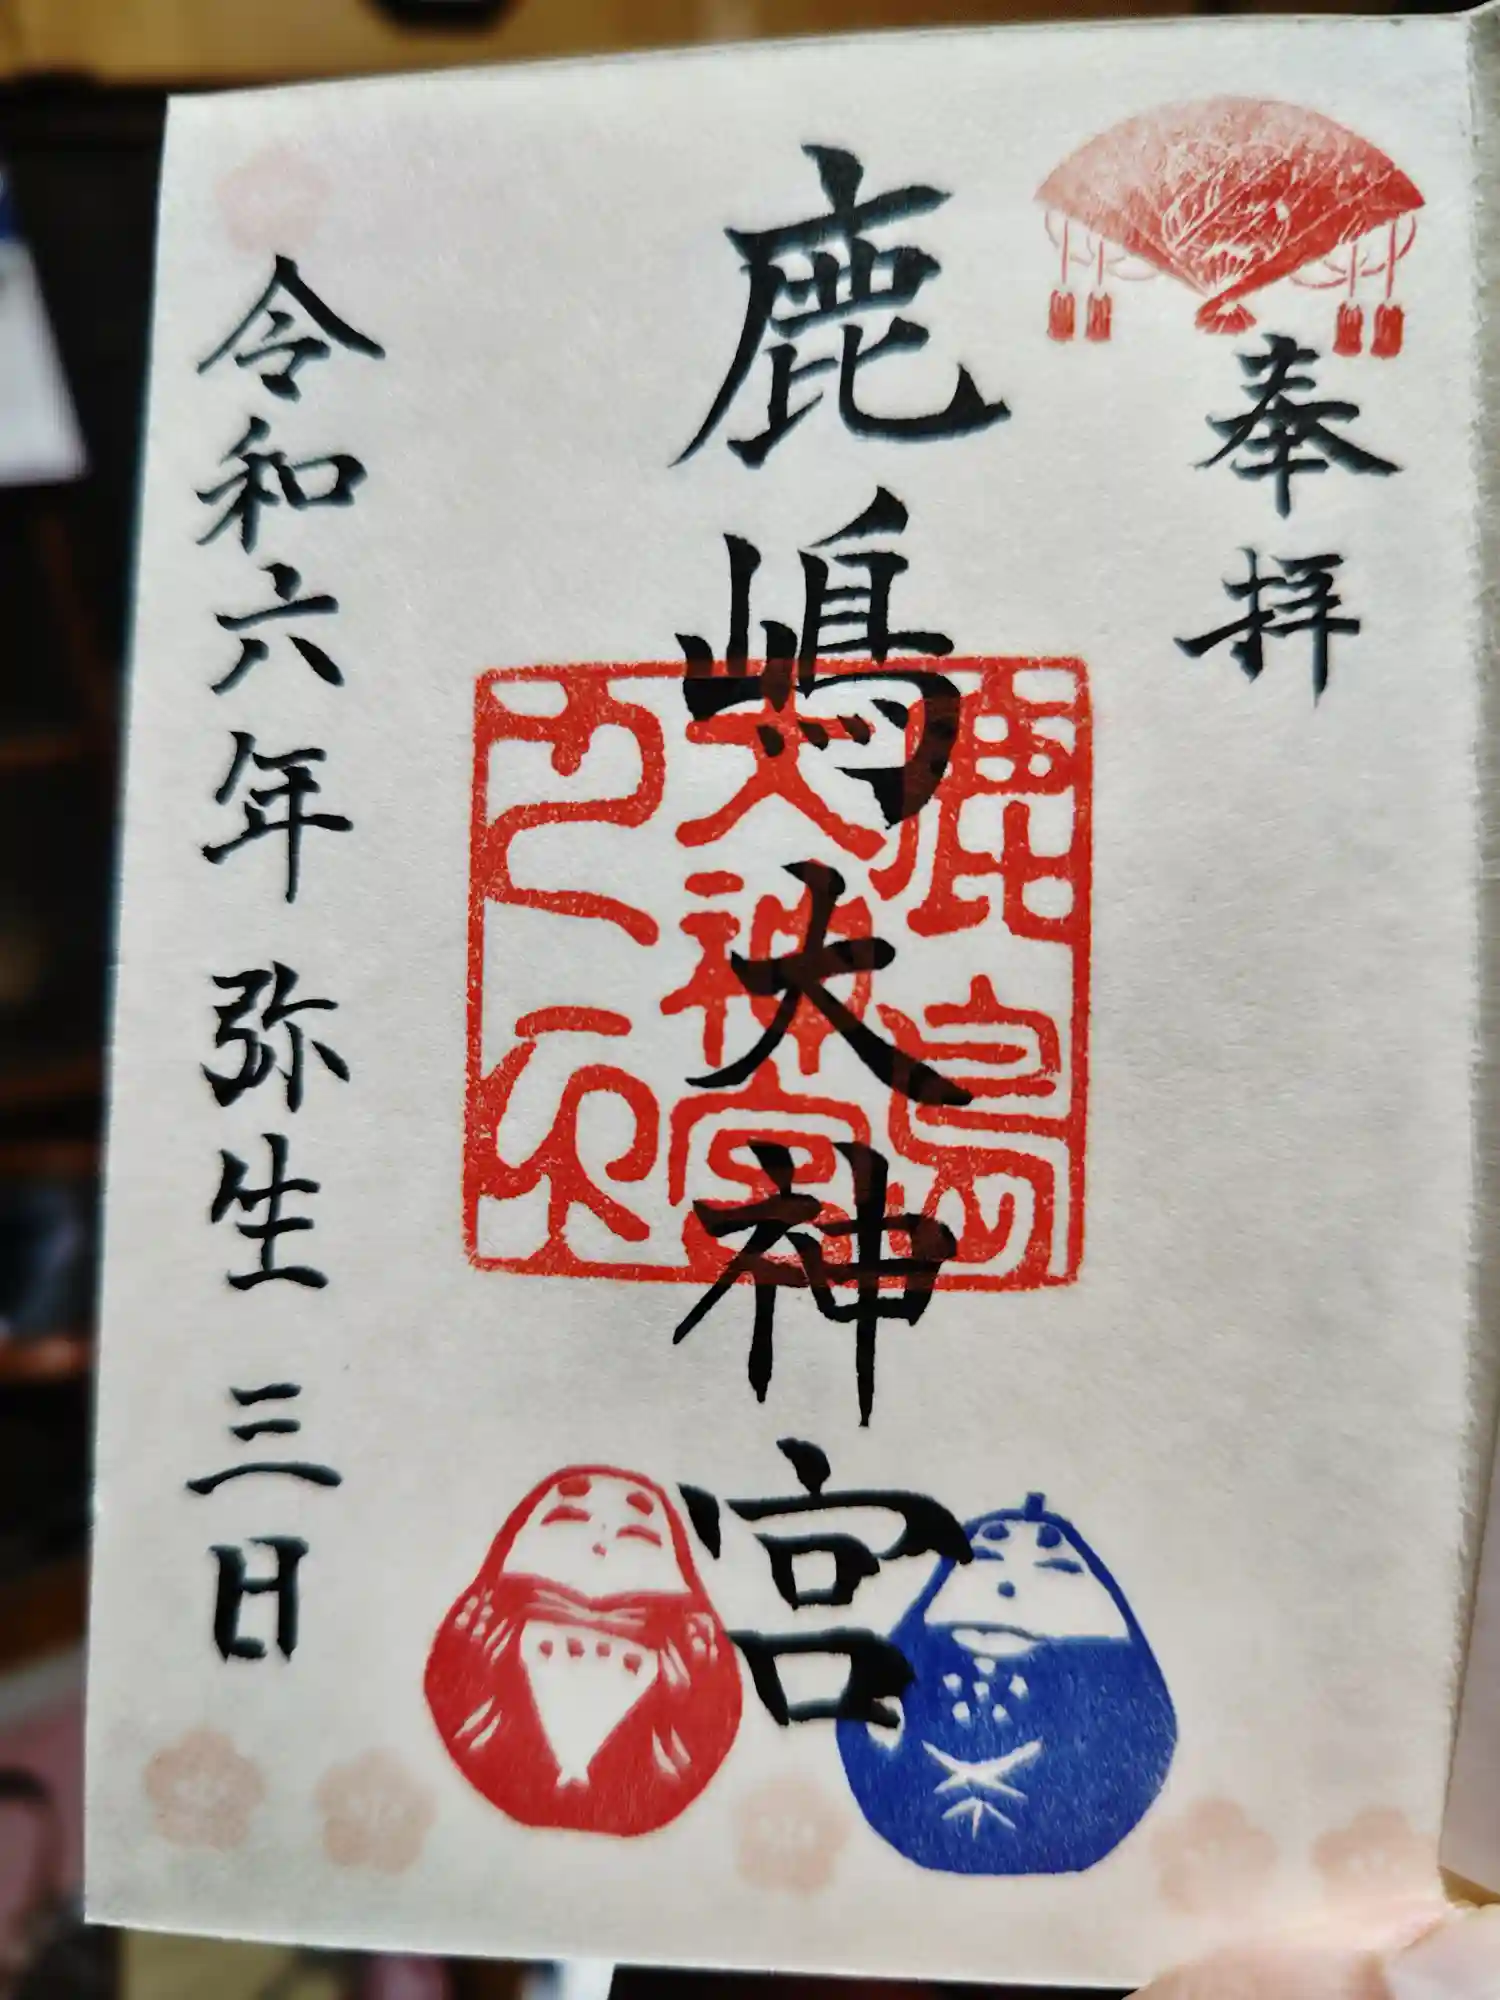 奉拝
鹿嶋大神宮
鹿島
大神宮
之印
令和六年 弥生 三日